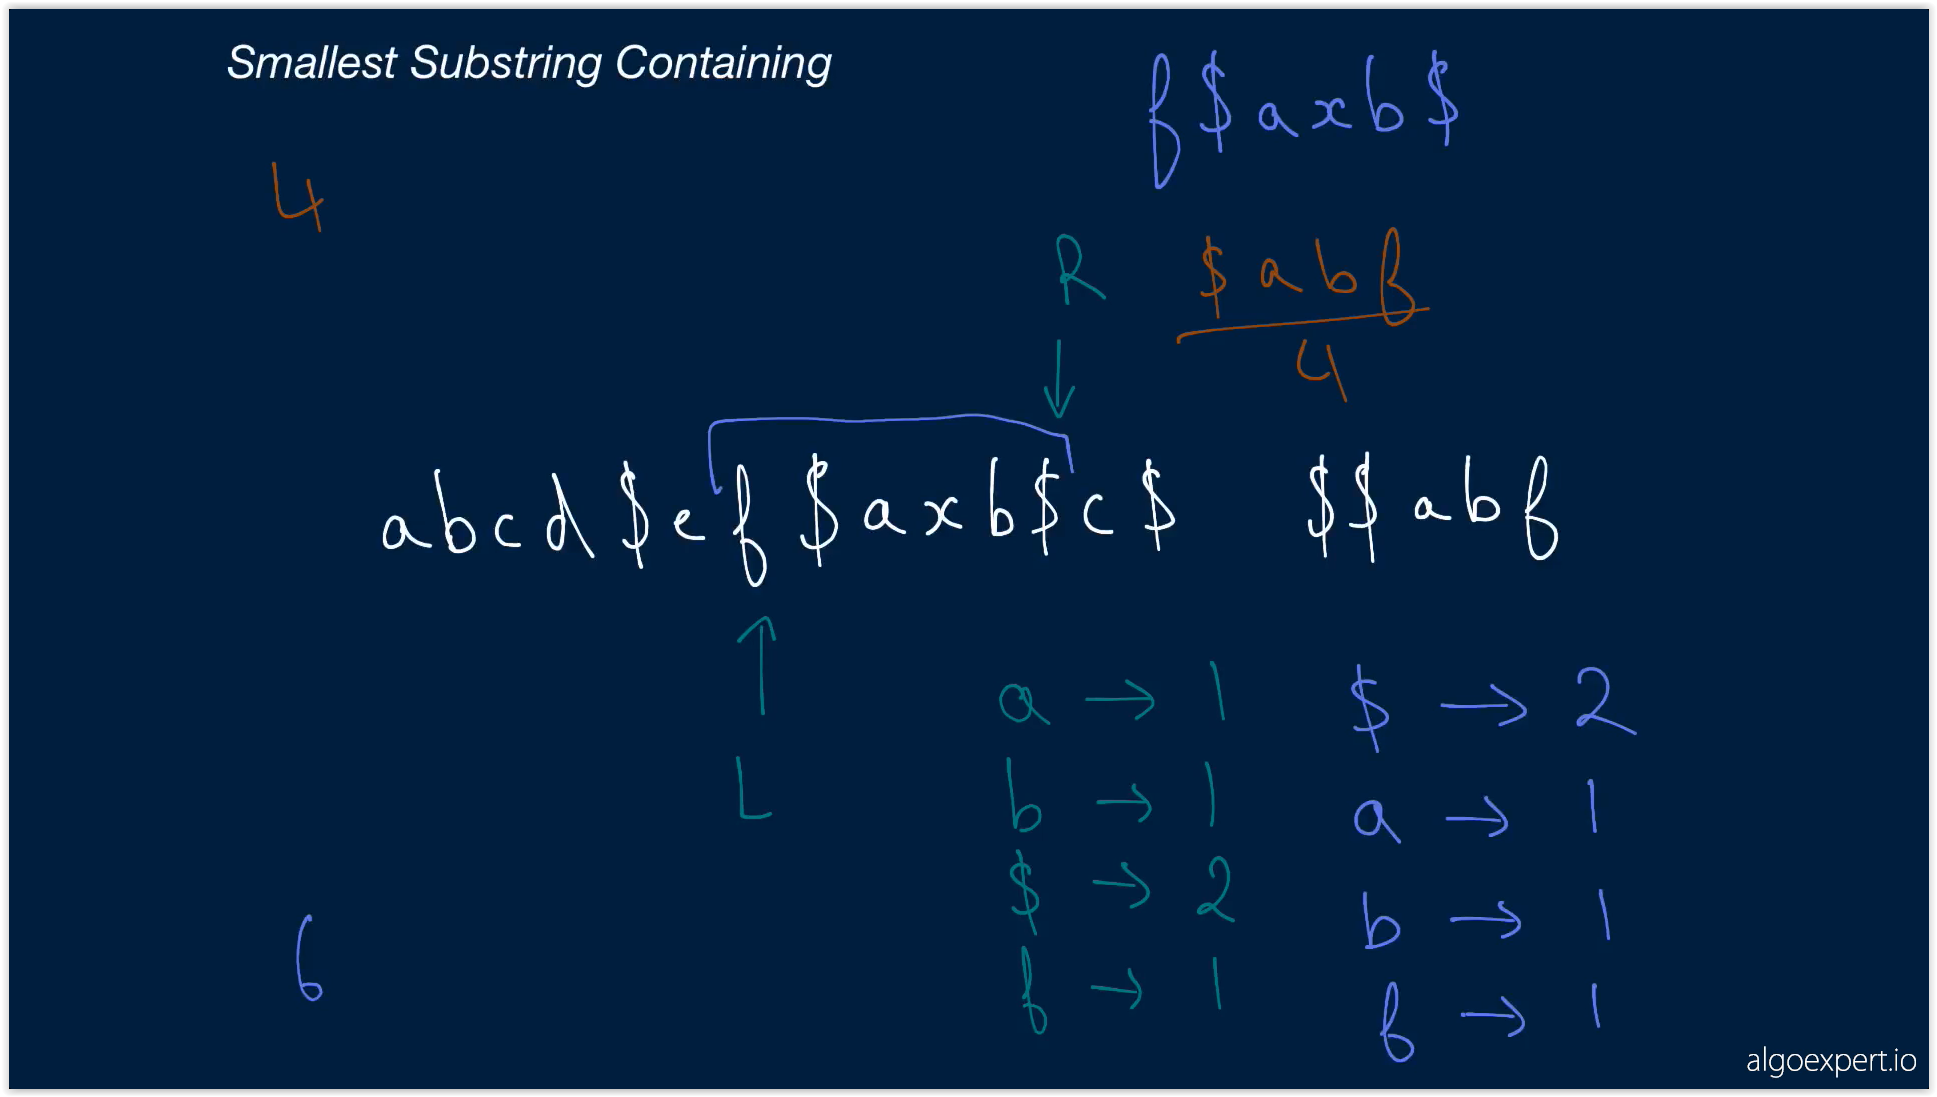 Smallest Substring Containing
f$axb$
4
R
$abf
4
abcd$ef$axb$c$ $$abf
L
a → 1
b → 1
$ → 2
f → 1
$ → 2
a → 1
b → 1
f → 1
6
algoexpert.io